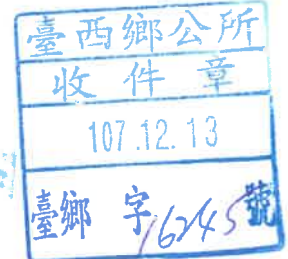 臺西鄉公所
收件章
107.12.13
臺鄉字16245號